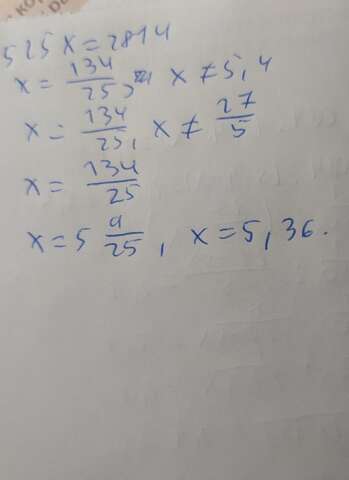 525x=2814
x = 134/25, x ≠ 5,4
x = 134/25, x ≠ 27/5
x = 134/25
x = 5 9/25, x = 5,36.